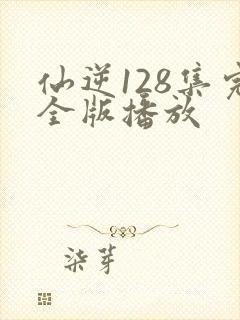 仙逆128集完
全版播放
柒芽